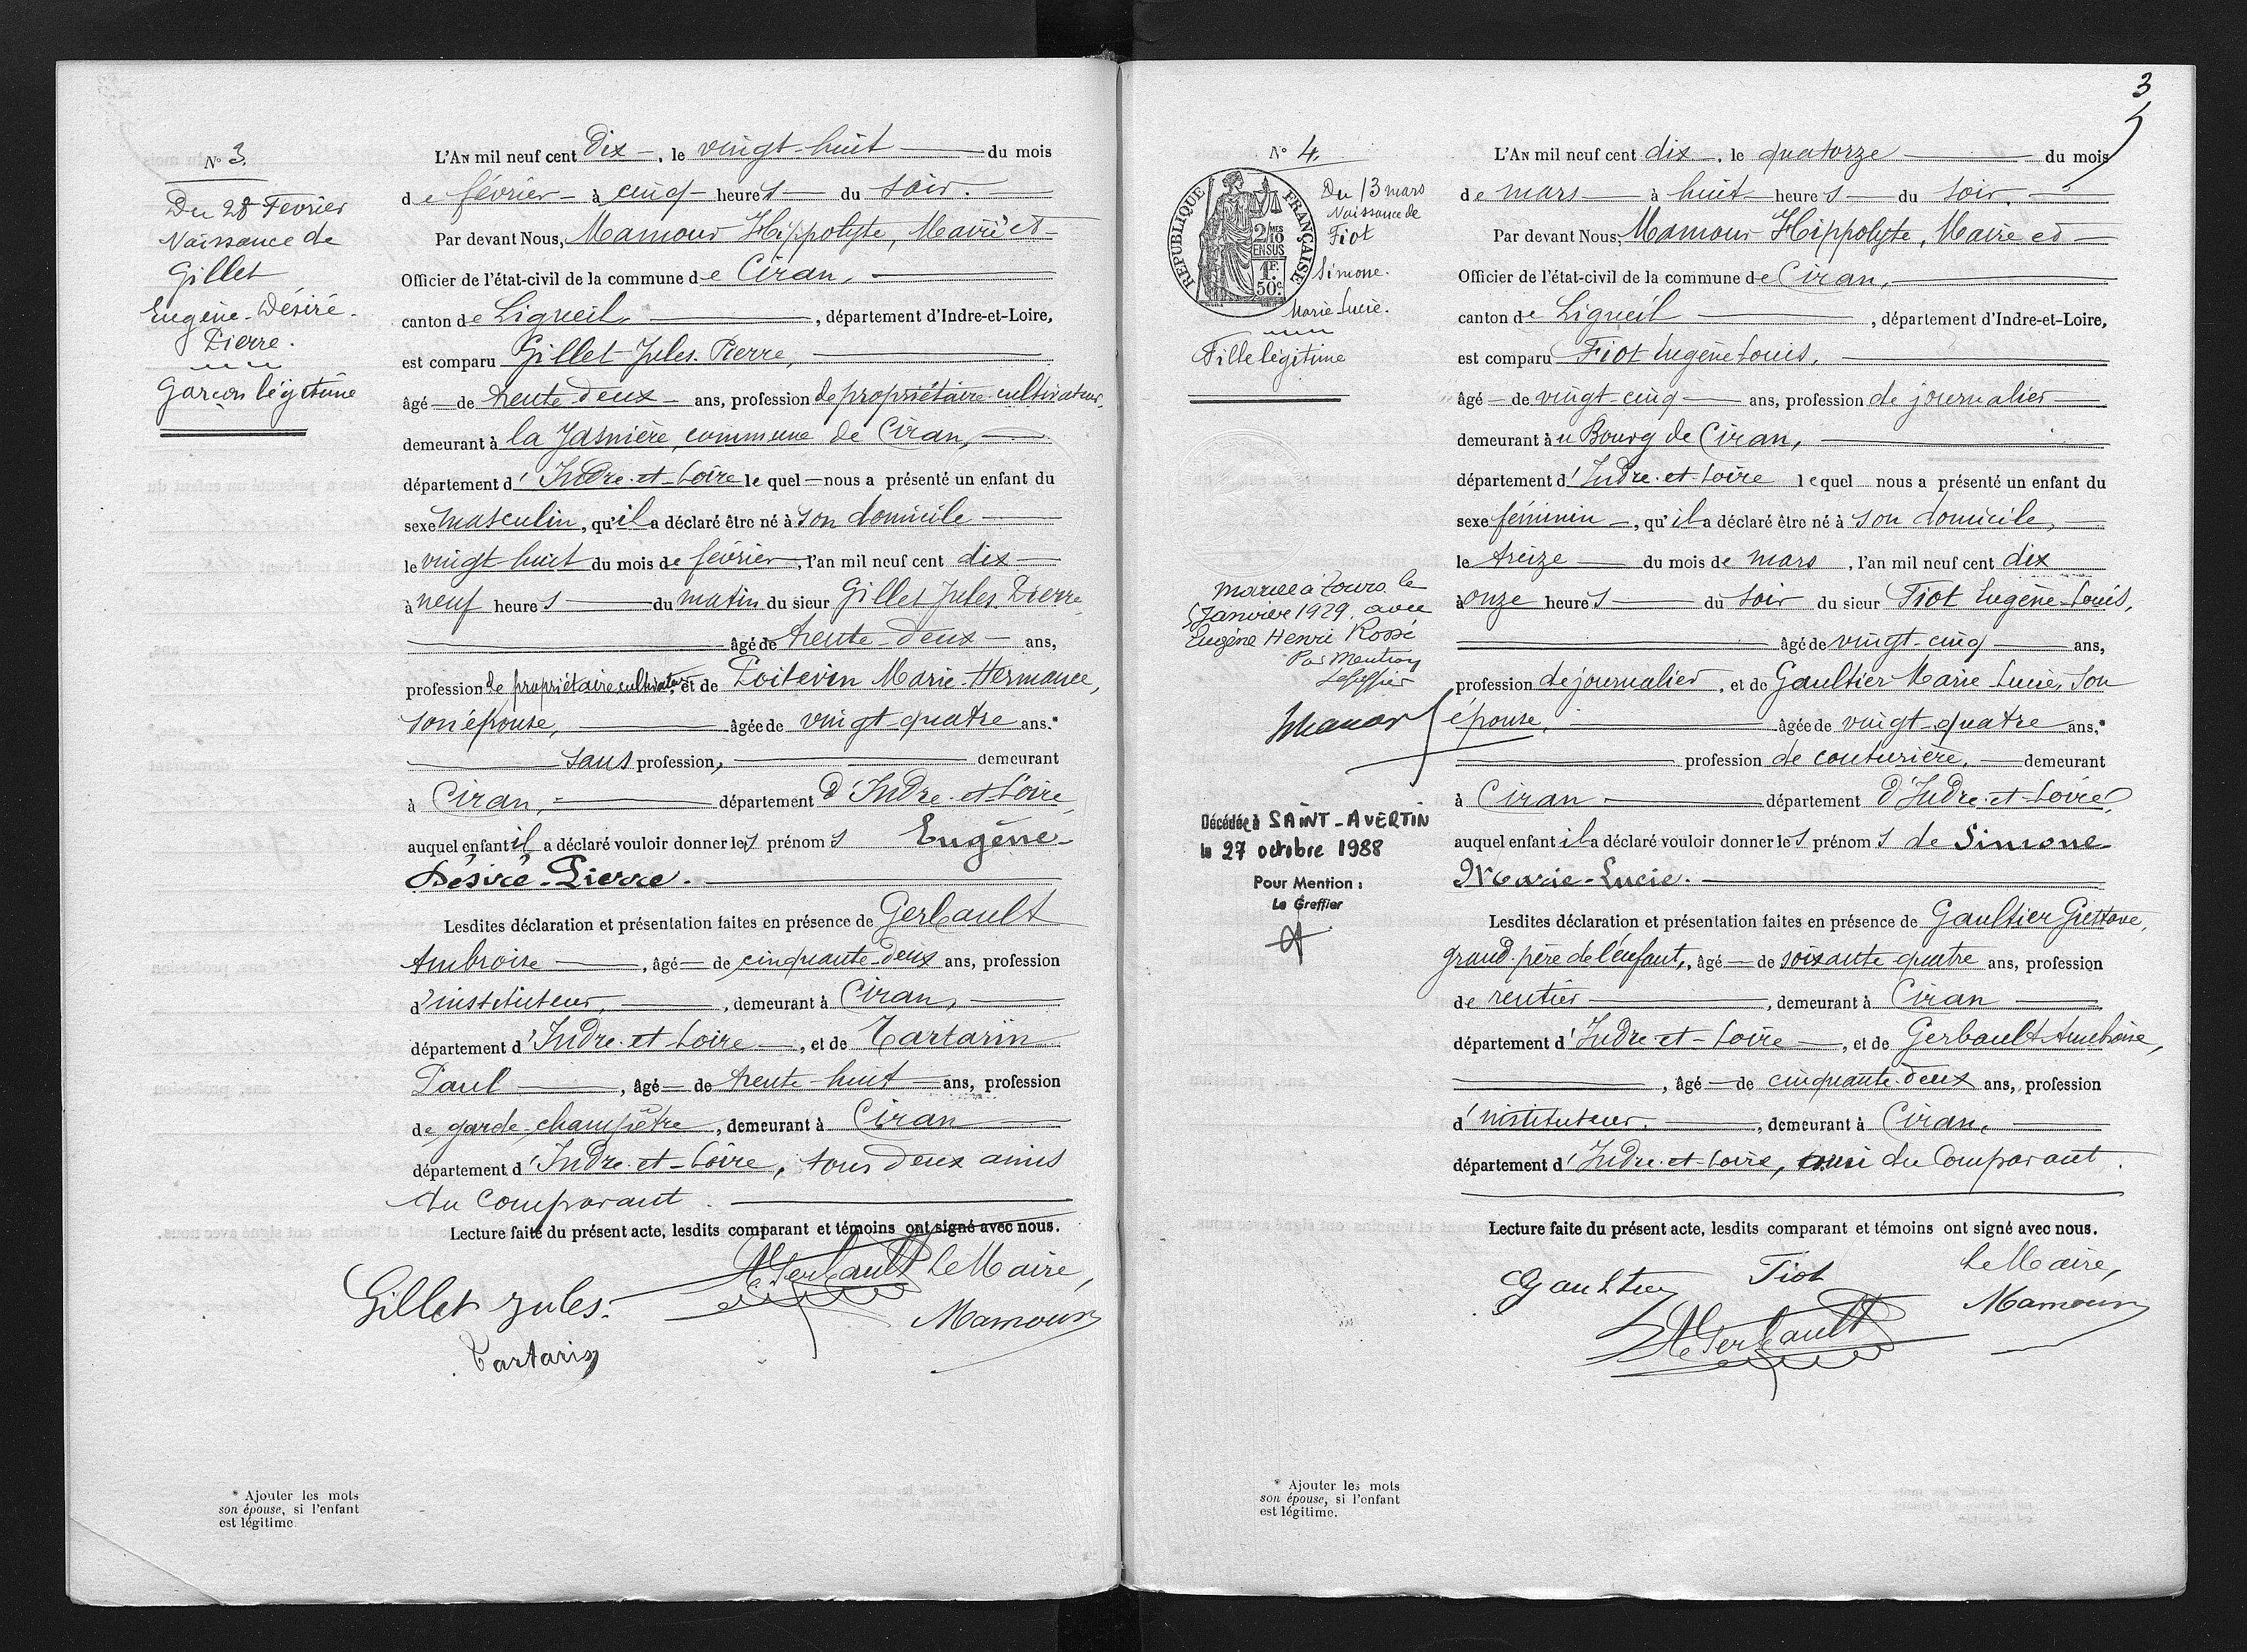 N° 3.
Du 28 Fevrier
Naissance de
Gillet
Eugène-Désiré-
Pierre.
Garçon légitime
L'AN mil neuf cent Dix, le vingt-huit du mois
de février à cinq heures du soir.
Par devant Nous, Mamour Hippolyte, Maire et
Officier de l'état-civil de la commune de Ciran,
canton de Ligueil, département d'Indre-et-Loire,
est comparu Gillet Jules-Pierre,
âgé de trente-deux ans, profession de propriétaire-cultivateur,
demeurant à la Jasnière, commune de Ciran,
département d'Indre-et-Loire le quel nous a présenté un enfant du
sexe masculin, qu'il a déclaré être né à son domicile
le vingt-huit du mois de février, l'an mil neuf cent dix
à neuf heures du matin du sieur Gillet Jules-Pierre
âgé de trente-deux ans,
profession de propriétaire cultivateur, et de Poitevin Marie-Hermance,
son épouse, âgée de vingt-quatre ans.*
sans profession, demeurant
à Ciran, département d'Indre-et-Loire,
auquel enfant il a déclaré vouloir donner les prénoms Eugène-
Désiré-Pierre.
Lesdites déclaration et présentation faites en présence de Gerbault
Ambroise, âgé de cinquante-deux ans, profession
d'instituteur, demeurant à Ciran,
département d'Indre-et-Loire, et de Tartarin
Paul, âgé de trente-huit ans, profession
de garde-champêtre, demeurant à Ciran
département d'Indre-et-Loire, tous deux amis
du comparant.
Lecture faite du présent acte, lesdits comparant et témoins ont signé avec nous.
Gillet Jules. A Gerbault Le Maire,
Mamour
Tartarin
* Ajouter les mots
son épouse, si l'enfant
est légitime
3
N° 4.
Du 13 mars
Naissance de
Fiot
Simone.
Marie Lucie.
Fille légitime
RÉPUBLIQUE FRANÇAISE
2/10MES
EN SUS
1F.
50c.
mariée à Tours le
5 Janvier 1929, avec
Eugène Henri Rossé
Par Mention
Le Greffier
Décédée à SAINT-AVERTIN
le 27 octobre 1988
Pour Mention :
Le Greffier
L'AN mil neuf cent dix, le quatorze du mois
de mars à huit heures du soir.
Par devant Nous, Mamour Hippolyte, Maire et
Officier de l'état-civil de la commune de Ciran,
canton de Ligueil, département d'Indre-et-Loire,
est comparu Fiot Eugène Louis,
âgé de vingt-cinq ans, profession de journalier
demeurant à u Bourg de Ciran,
département d'Indre-et-Loire lequel nous a présenté un enfant du
sexe féminin, qu'il a déclaré être né à son domicile,
le treize du mois de mars, l'an mil neuf cent dix
à onze heures du soir du sieur Fiot Eugène-Louis,
âgé de vingt-cinq ans,
profession de journalier, et de Gaultier Marie Lucie, son
épouse, âgée de vingt-quatre ans,*
profession de couturière, demeurant
à Ciran département d'Indre-et-Loire,
auquel enfant il a déclaré vouloir donner les prénoms de Simone-
Marie-Lucie.
Lesdites déclaration et présentation faites en présence de Gaultier Gustave,
grand-père de l'enfant, âgé de soixante-quatre ans, profession
de rentier, demeurant à Ciran
département d'Indre-et-Loire, et de Gerbault Ambroise,
, âgé de cinquante-deux ans, profession
d'instituteur, demeurant à Ciran,
département d'Indre-et-Loire, ami du Comparant.
Lecture faite du présent acte, lesdits comparant et témoins ont signé avec nous.
Gaultier Fiot Le Maire,
A Gerbault Mamour
* Ajouter les mots
son épouse, si l'enfant
est légitime.